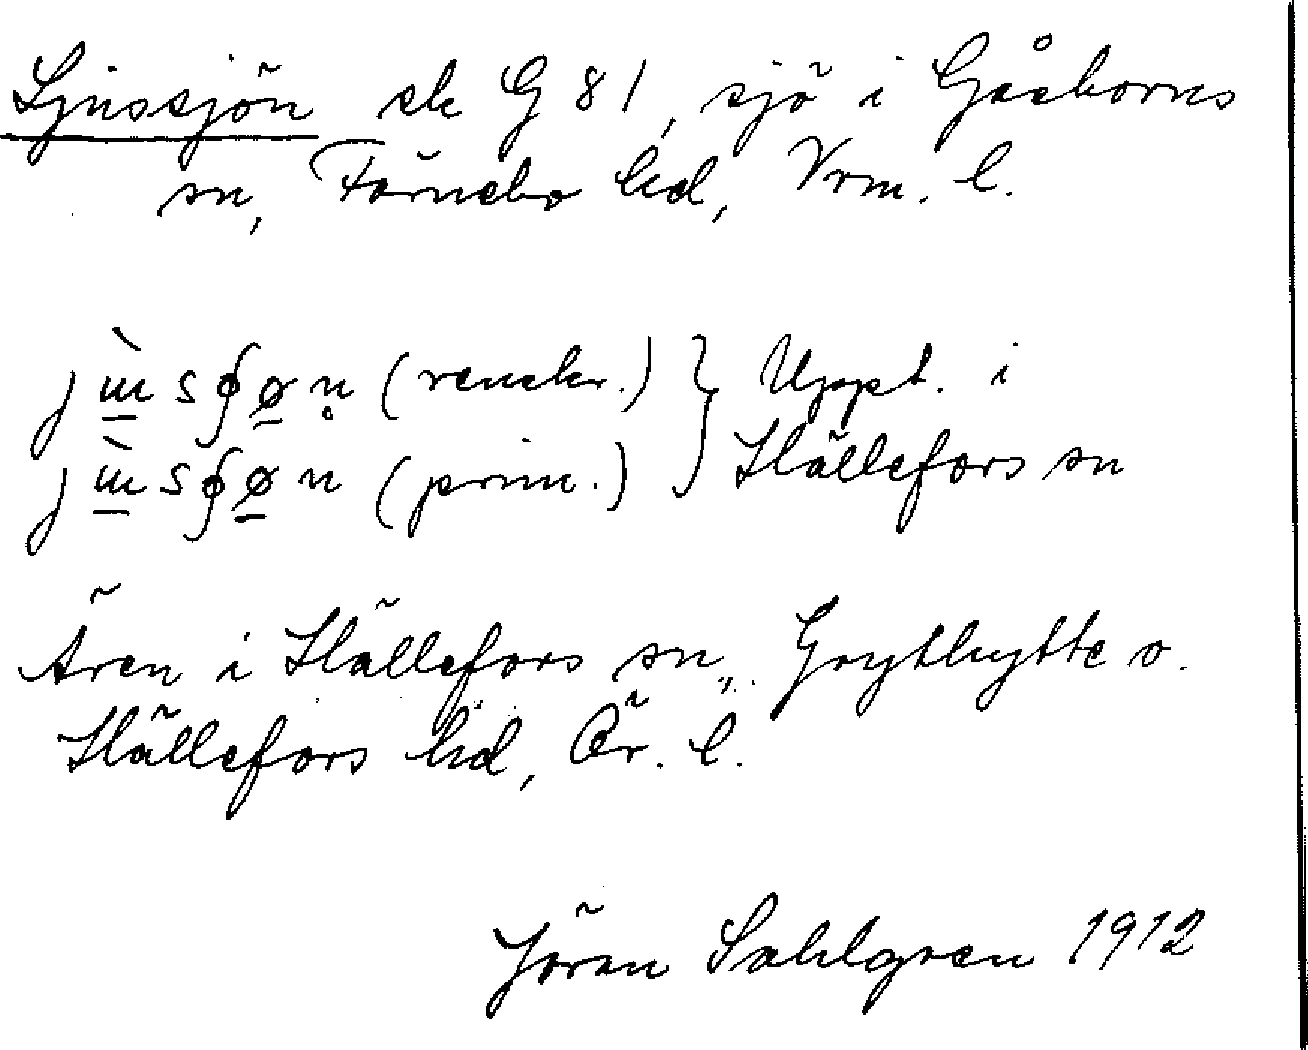 Ljussjön ek G 81, sjö i Gåsborns
sn, Färnebo hd, Vrm. l.
(venskr.) } Uppt. i
(prim.) } Hällefors sn
Ären i Hällefors sn, Grythytte o.
Hällefors hd, Ör. l.
Jöran Sahlgren 1912